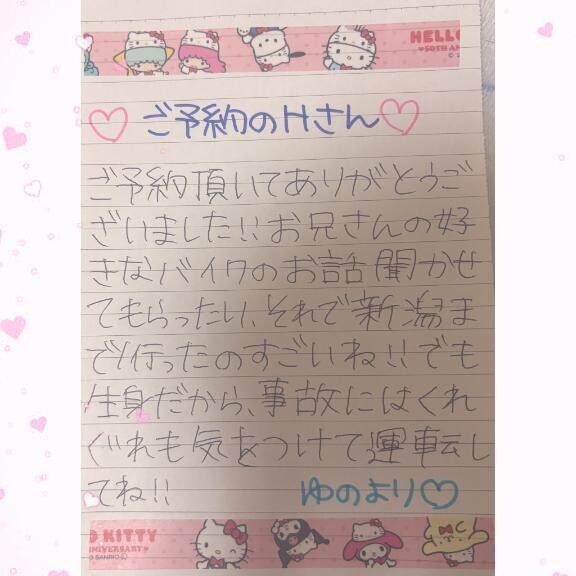 HELLO
50TH AN
ご予約のHさん
ご予約頂いてありがとうご
ざいました!!お兄さんの好
きなバイクのお話聞かせ
てもらったり、それで新潟ま
で行ったのすごいね!!でも
生身だから、事故にはくれ
ぐれも気をつけて運転し
てね!!
ゆのより♡
O KITTY
NNIVERSARY
© SANRIO